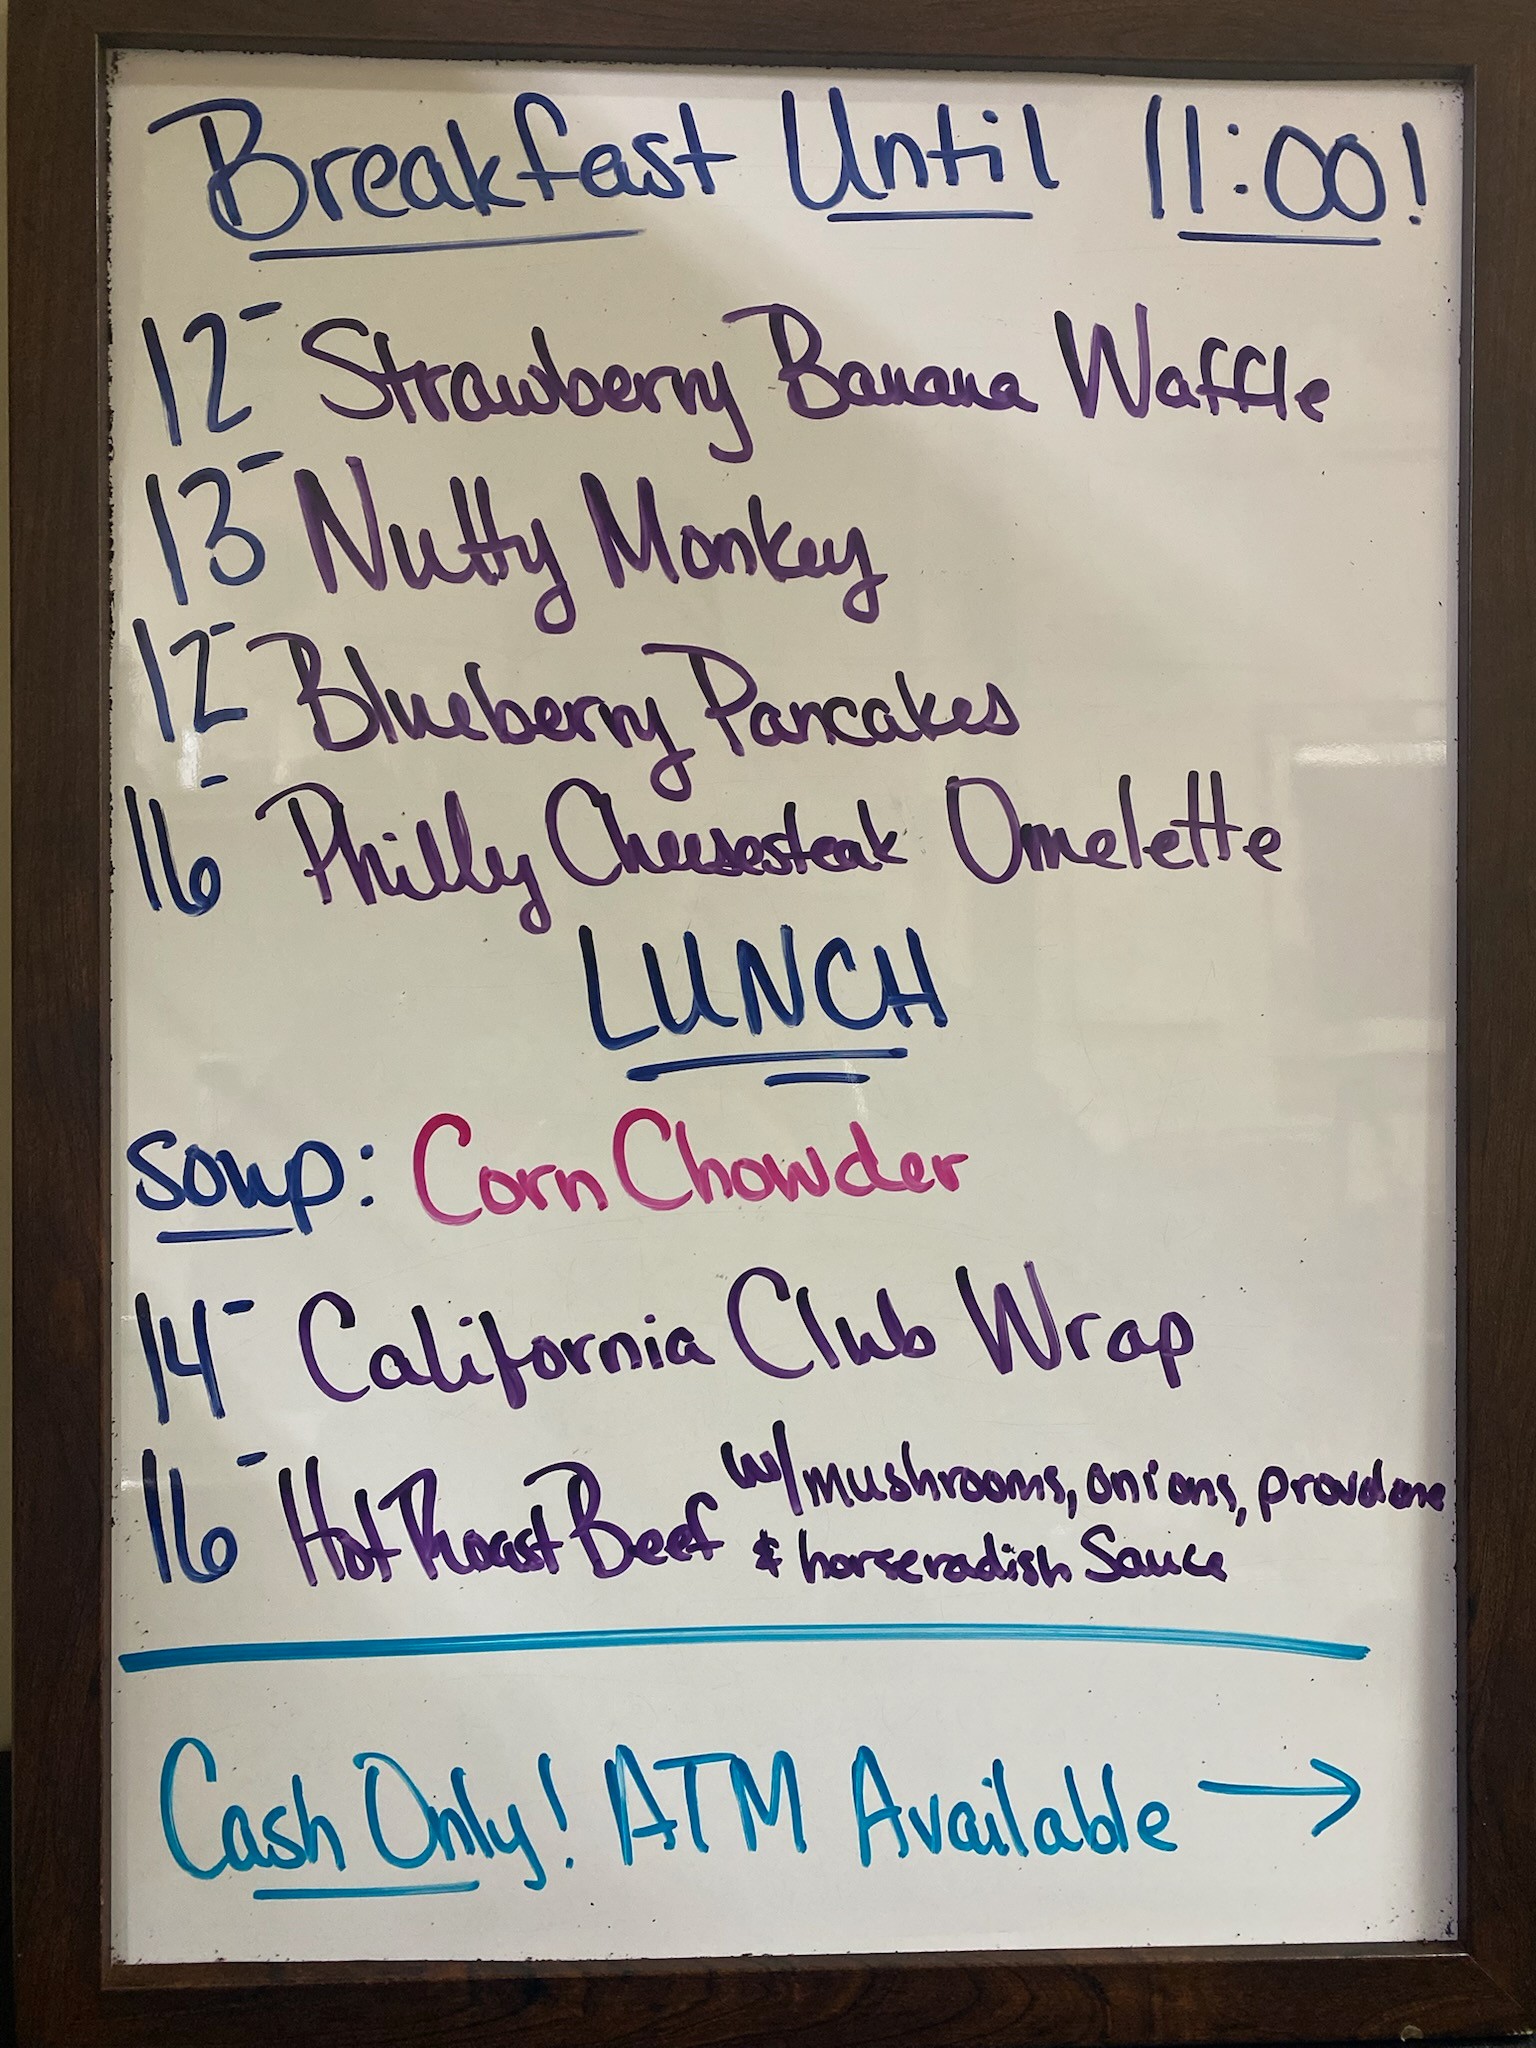 Breakfast Until 11:00!
12- Strawberry Banana Waffle
13- Nutty Monkey
12- Blueberry Pancakes
16- Philly Cheesesteak Omelette
LUNCH
Soup: Corn Chowder
14- California Club Wrap
16- Hot Roast Beef w/mushrooms, onions, provolone
& horseradish Sauce
Cash Only! ATM Available →